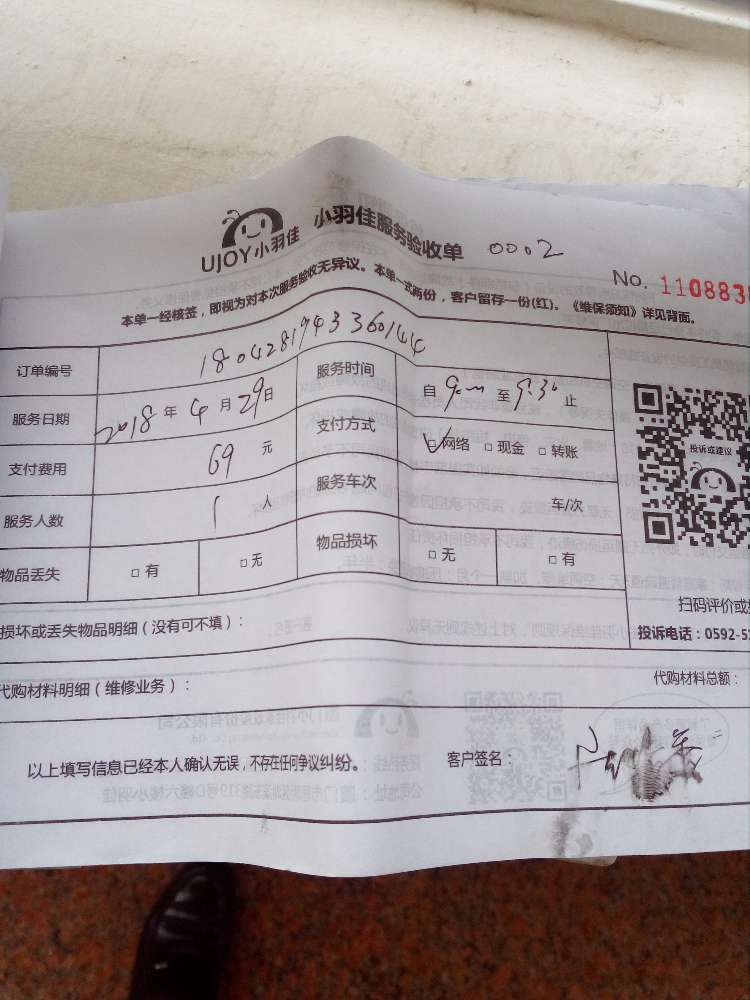 UJOY小羽佳 小羽佳服务验收单 0002
No. 110883
本单一经核签，即视为对本次服务验收无异议。本单一式两份，客户留存一份(红)。《维保须知》详见背面。
订单编号 1804281943360144 服务时间 自 9:00 至 9:30 止
服务日期 2018 年 4 月 29 日 支付方式 ☑网络 □现金 □转账
支付费用 69 元 服务车次 车/次
服务人数 1 人 物品损坏 □无 □有
物品丢失 □有 □无
投诉或建议
扫码评价或
损坏或丢失物品明细（没有可不填）：
投诉电话：0592-5
代购材料明细（维修业务）：
代购材料总额：
以上填写信息已经本人确认无误，不存在任何争议纠纷。 客户签名：